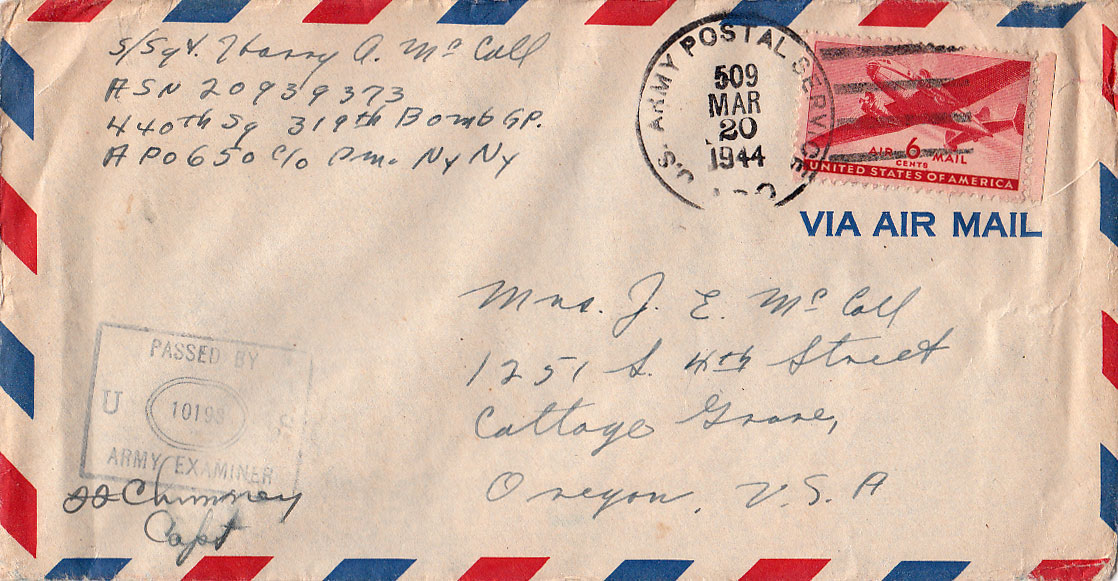 S/Sgt. Harry A. McCall
ASN 20939373
440th Sq 319th Bomb GP.
APO 650 c/o P.m. Ny Ny
U.S. ARMY POSTAL SERVICE
509
MAR
20
1944
AIR 6 MAIL
CENTS
UNITED STATES OF AMERICA
VIA AIR MAIL
Mrs. J. E. McCall
1251 S. 4th Street
Cottage Grove,
Oregon, U.S.A
PASSED BY
U 10198 S
ARMY EXAMINER
Chimney
Capt